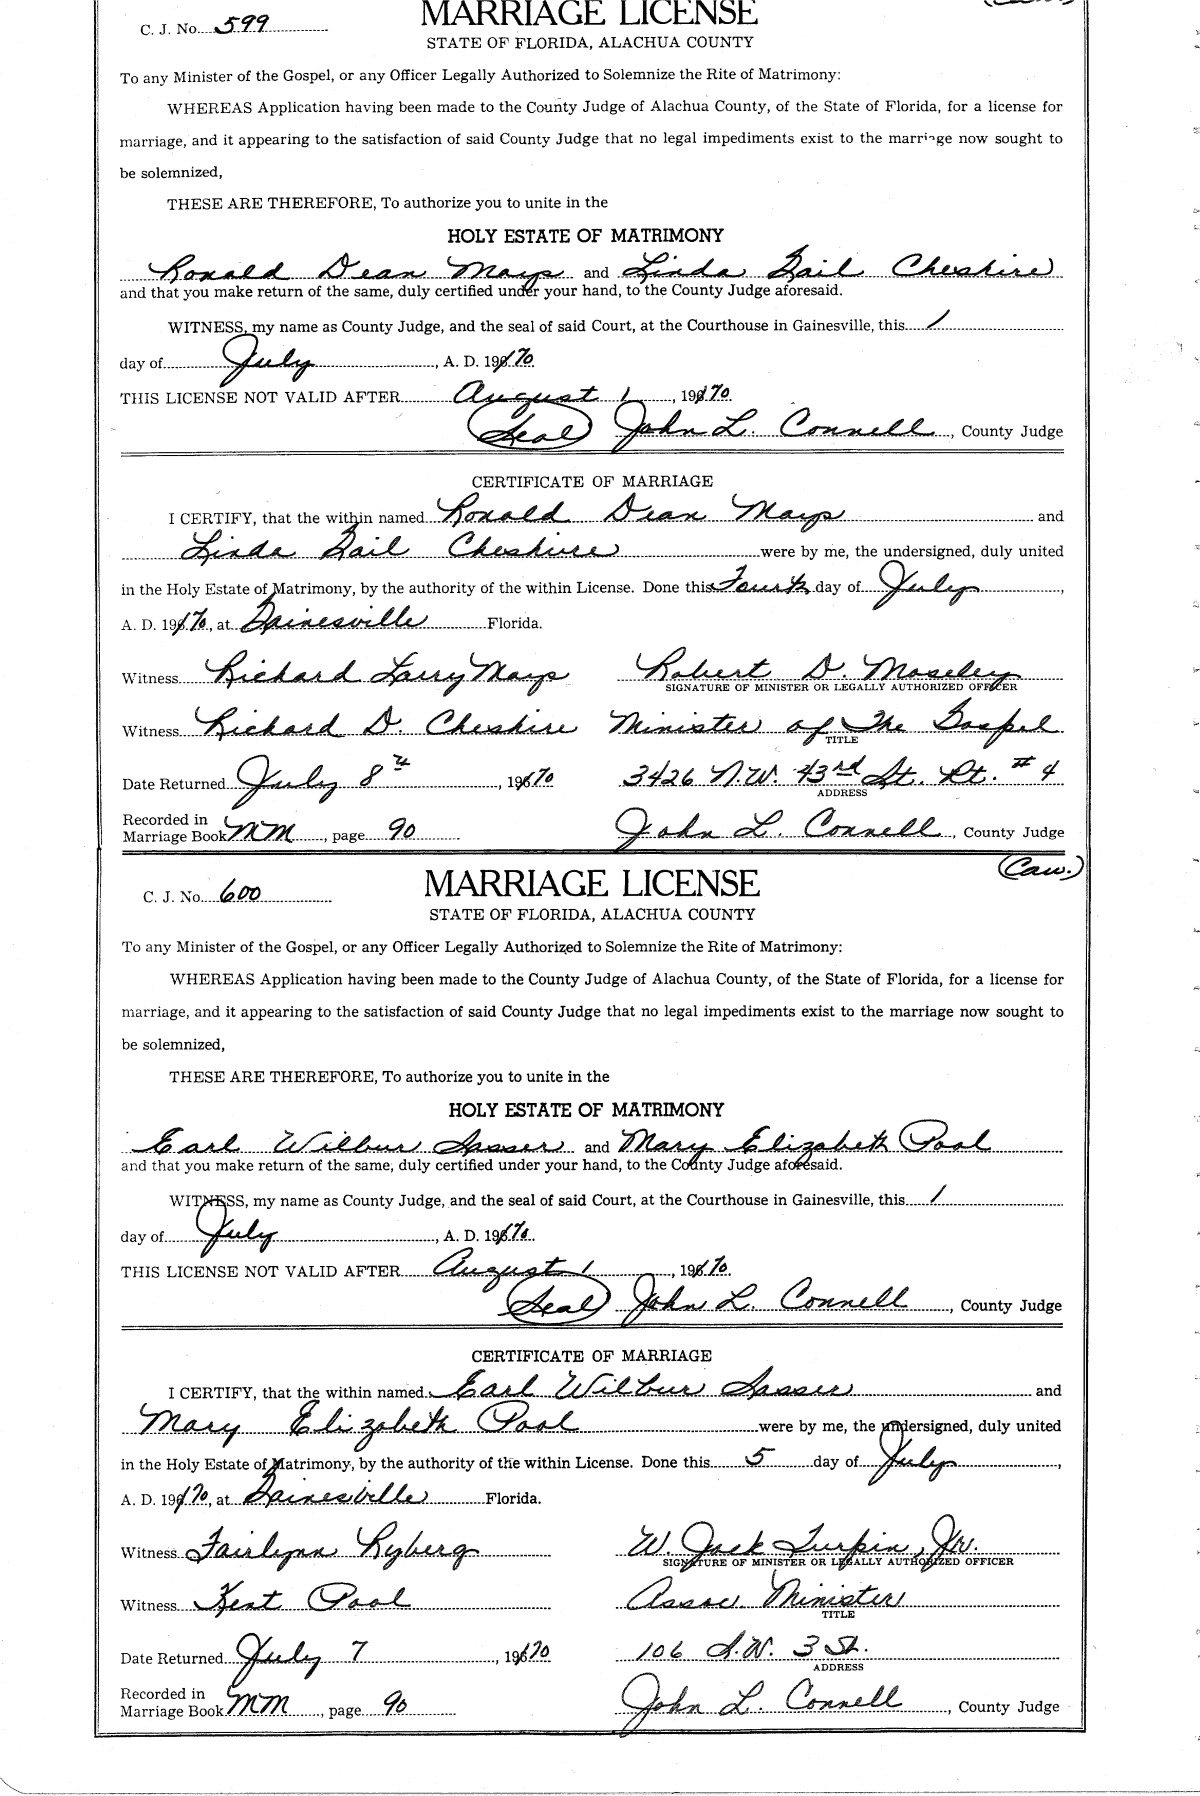 C. J. No. 599
MARRIAGE LICENSE
STATE OF FLORIDA, ALACHUA COUNTY
To any Minister of the Gospel, or any Officer Legally Authorized to Solemnize the Rite of Matrimony:
WHEREAS Application having been made to the County Judge of Alachua County, of the State of Florida, for a license for
marriage, and it appearing to the satisfaction of said County Judge that no legal impediments exist to the marriage now sought to
be solemnized,
THESE ARE THEREFORE, To authorize you to unite in the
HOLY ESTATE OF MATRIMONY
Ronald Dean Mays and Linda Gail Cheshire
and that you make return of the same, duly certified under your hand, to the County Judge aforesaid.
WITNESS, my name as County Judge, and the seal of said Court, at the Courthouse in Gainesville, this 1
day of July, A. D. 1970.
THIS LICENSE NOT VALID AFTER August 1, 1970.
(Seal) John L. Connell, County Judge
CERTIFICATE OF MARRIAGE
I CERTIFY, that the within named Ronald Dean Mays and
Linda Gail Cheshire were by me, the undersigned, duly united
in the Holy Estate of Matrimony, by the authority of the within License. Done this Fourth day of July,
A. D. 1970, at Gainesville Florida.
Witness Richard Larry Mays Robert D. Moseley
SIGNATURE OF MINISTER OR LEGALLY AUTHORIZED OFFICER
Witness Richard D. Cheshire Minister of The Gospel
TITLE
Date Returned July 8th, 1970 3426 N.W. 43rd St. Rt. #4
ADDRESS
Recorded in
Marriage Book MM, page 90 John L. Connell, County Judge
(Caw.)
C. J. No. 600
MARRIAGE LICENSE
STATE OF FLORIDA, ALACHUA COUNTY
To any Minister of the Gospel, or any Officer Legally Authorized to Solemnize the Rite of Matrimony:
WHEREAS Application having been made to the County Judge of Alachua County, of the State of Florida, for a license for
marriage, and it appearing to the satisfaction of said County Judge that no legal impediments exist to the marriage now sought to
be solemnized,
THESE ARE THEREFORE, To authorize you to unite in the
HOLY ESTATE OF MATRIMONY
Earl Wilbur Sasser and Mary Elizabeth Pool
and that you make return of the same, duly certified under your hand, to the County Judge aforesaid.
WITNESS, my name as County Judge, and the seal of said Court, at the Courthouse in Gainesville, this 1
day of July, A. D. 1970.
THIS LICENSE NOT VALID AFTER August 1, 1970.
(Seal) John L. Connell, County Judge
CERTIFICATE OF MARRIAGE
I CERTIFY, that the within named Earl Wilbur Sasser and
Mary Elizabeth Pool were by me, the undersigned, duly united
in the Holy Estate of Matrimony, by the authority of the within License. Done this 5 day of July,
A. D. 1970, at Gainesville Florida.
Witness Fairlynn Ryberg W. Jack Turpin, Jr.
SIGNATURE OF MINISTER OR LEGALLY AUTHORIZED OFFICER
Witness Kent Pool Assoc. Minister
TITLE
Date Returned July 7, 1970 106 S.W. 3 St.
ADDRESS
Recorded in
Marriage Book MM, page 90 John L. Connell, County Judge